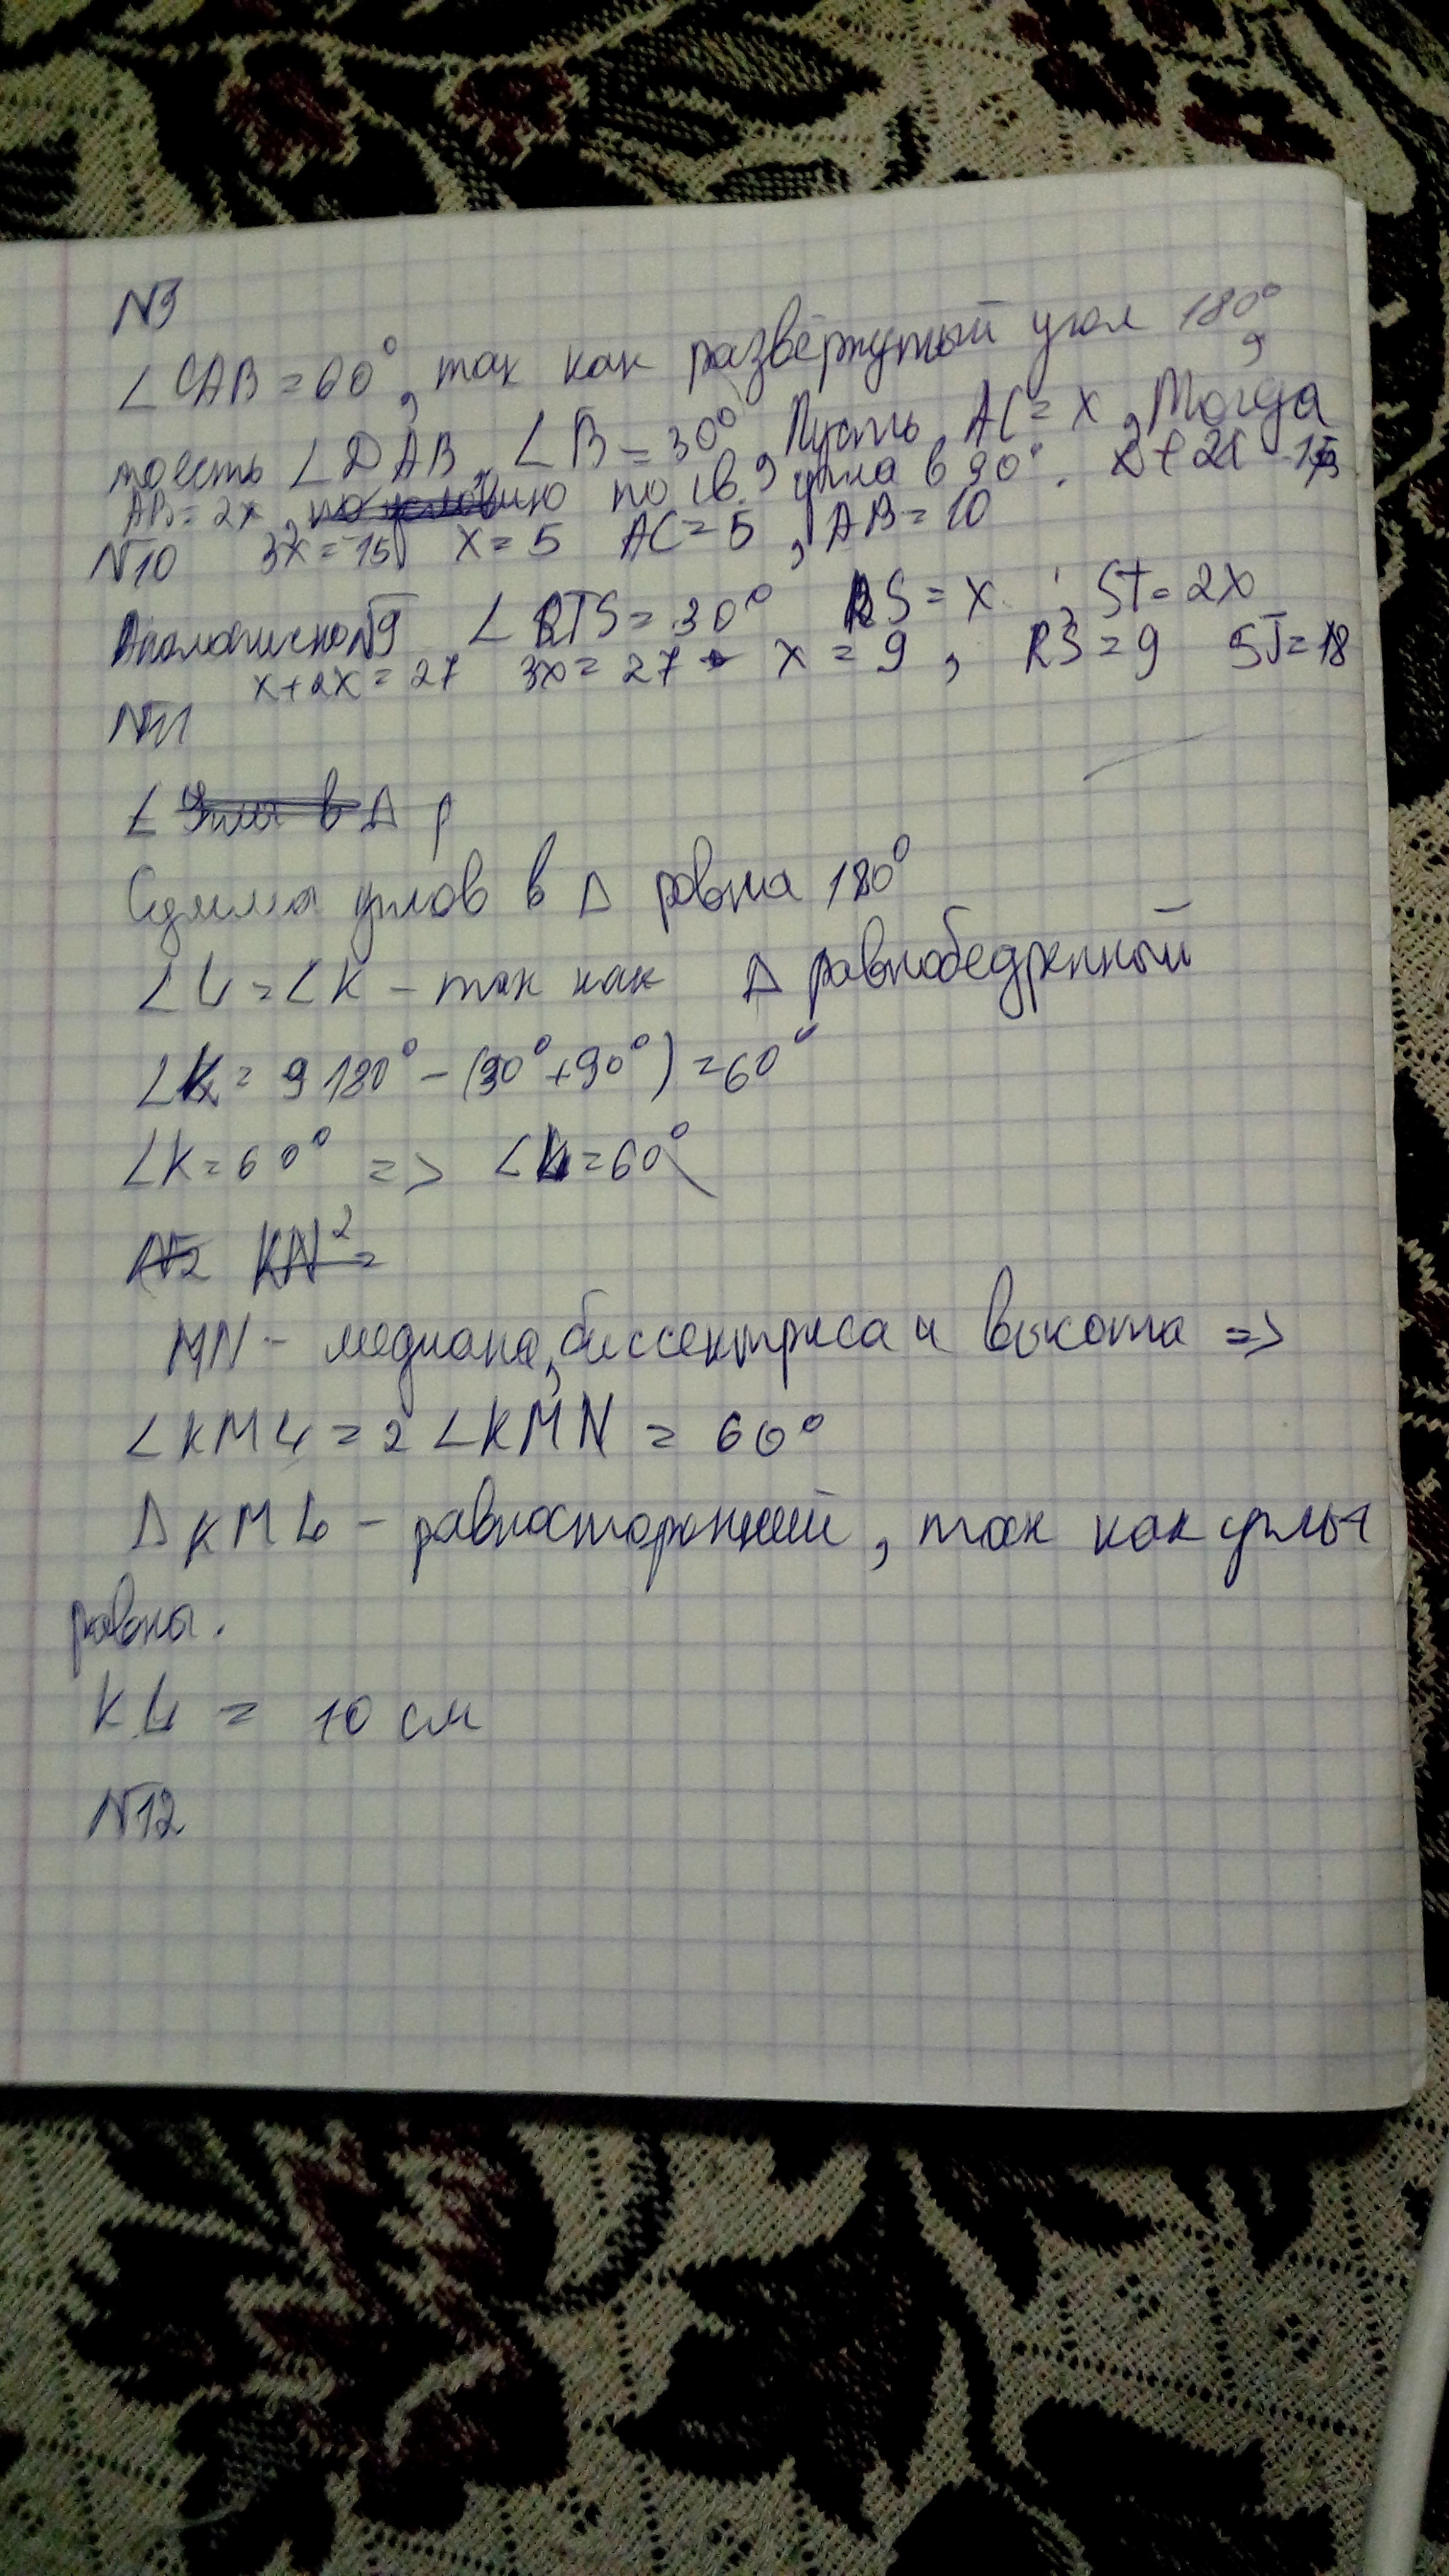 N9
∠CAB = 60°, так как развёрнутый угол 180°,
тоесть ∠DAB, ∠B = 30°, Пусть AC = x, Тогда
AB = 2x, по св. угла в 90°. x + 2x = 15
N10 3x = 15 x = 5 AC = 5, AB = 10
Аналогично N9 ∠RTS = 30° RS = x ; ST = 2x
x + 2x = 27 3x = 27 x = 9, RS = 9 ST = 18
N11
∠ Углы в Δ р
Сумма углов в Δ равна 180°
∠L = ∠K - так как Δ равнобедренный
∠K = 9 180° - (30° + 90°) = 60°
∠K = 60° => ∠L = 60°
N2 KN² =
MN - медиана, биссектриса и высота =>
∠KML = 2 ∠KMN = 60°
ΔKML - равносторонний, так как углы
равны.
KL = 10 см
N12